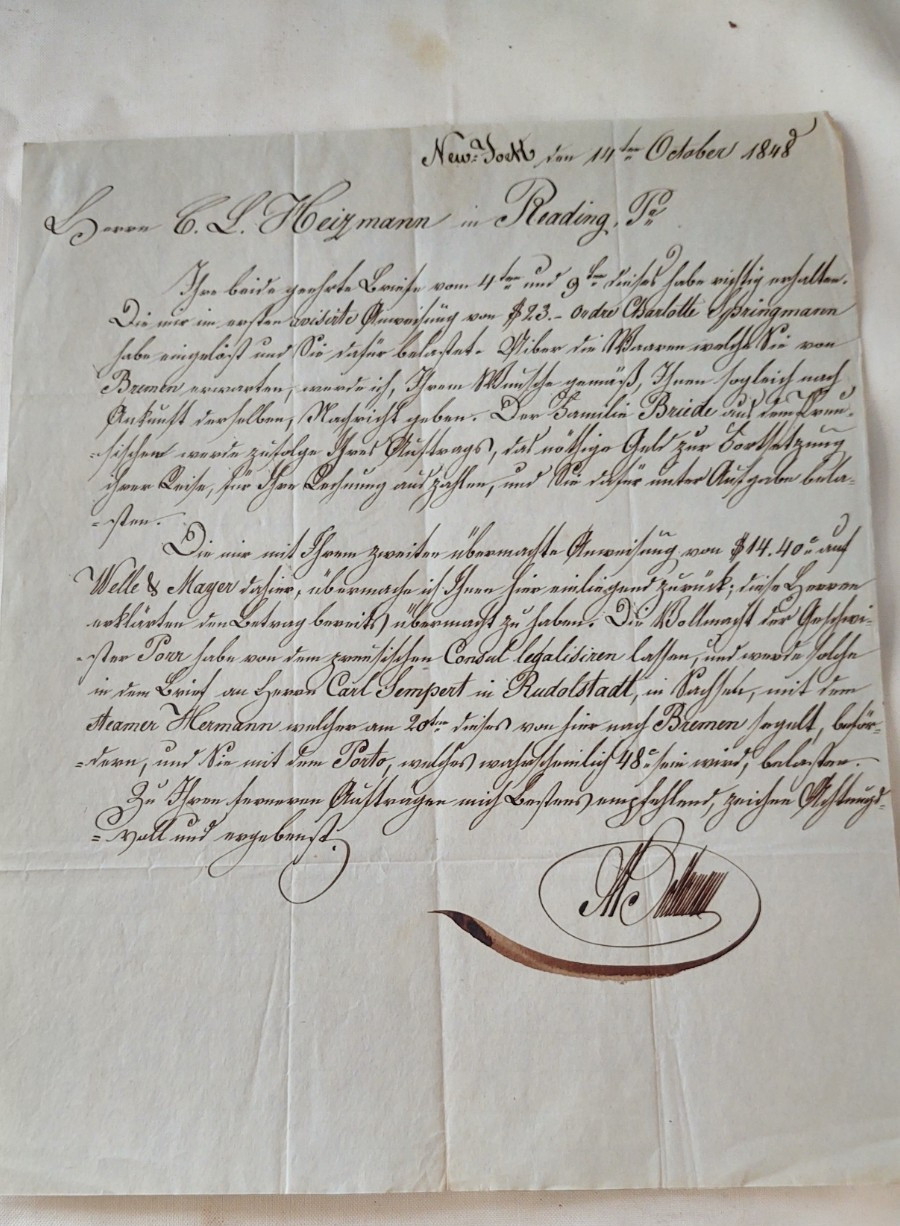 New-York den 14ten October 1848
Herrn C. L. Heizmann in Reading, Pa
Ihre beide geehrte Briefe vom 4ten und 9ten dieses habe richtig erhalten.
Die mir im ersten avisirte Anweisung von $23.- Ordre Charlotte Springmann
habe eingelöst und Sie dafür belastet. Ueber die Waaren welche Sie von
Bremen erwarten, werde ich, Ihrem Wunsche gemäß, Ihnen sogleich nach
Ankunft derselben, Nachricht geben. Der Familie Bride aus dem Preu-
=sischen werde zufolge Ihres Auftrags, das nöthige Geld zur Fortsetzung
ihrer Reise, für Ihre Rechnung auszahlen, und Sie dafür unter Aufgabe bela-
=sten.
Die mir mit Ihrem zweiten übermachte Anweisung von $14.40c auf
Welle & Mayer dahier, übermache ich Ihnen hier einliegend zurück; diese Herren
erklärten den Betrag bereits übermacht zu haben. Die Vollmacht der Geschwi-
=ster Porr habe von dem preusischen Consul legalisiren lassen, und werde solche
in dem Brief an Herrn Carl Sempert in Rudolstadt, in Sachsen, mit dem
Steamer Hermann welcher am 20ten dieses von hier nach Bremen segelt, beför-
=dern, und Sie mit dem Porto, welches wahrscheinlich 48c sein wird, belasten.
Zu Ihren ferneren Auftragen mich Bestens empfehlend, zeichne Achtungs-
=voll und ergebenst.